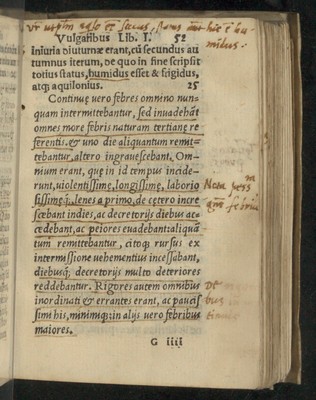 Vulgaribus Lib. I. 52
iniuria diuturnæ erant, cú secundus au
tumnus iterum, de quo in fine scripsit
totius status, humidus esset & frigidus,
atq; aquilonius. 25
Continuę uero febres omnino nun-
quam intermittebantur, sed inuadebāt
omnes more febris naturam tertianę re
ferentis. & uno die aliquantum remit-
tebantur, altero ingrauescebant. Om-
nium erant, quę in id tempus incide-
runt, uiolentissimę, longissimę, laborio
sissimęq;, lenes a primo, de cętero incre
scebant indies, ac decretorijs diebus ac=
cedebant, ac peiores euadebant: aliquā
tum remittebantur, citoq; rursus ex
intermissione uehementius incessabant,
diebusq; decretorijs multo deteriores
reddebantur. Rigores autem omnibus
inordinati & errantes erant, ac paucis
simi his, minimiq;: in alijs uero febribus
maiores.
G iiii